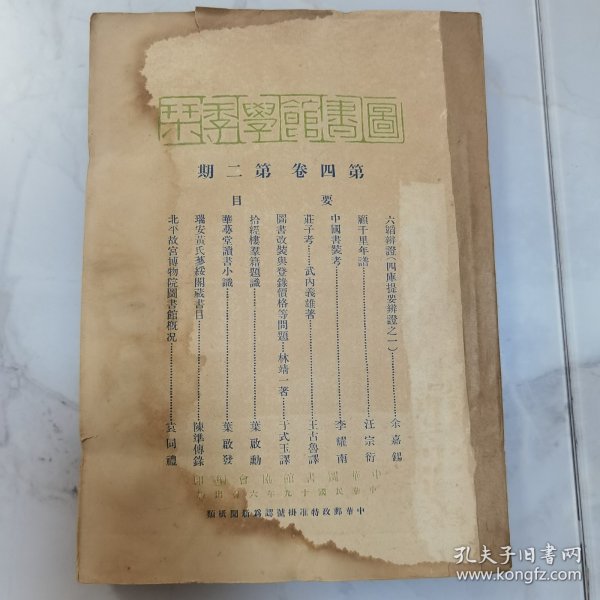 圖書館學季刊
第四卷 第二期
要目
六韜辨證(四庫提要辨證之一)……余嘉錫
顧千里年譜……汪宗衍
中國書裝考……李耀南
莊子考……武內義雄著 王古魯譯
圖書改裝與登錄價格等問題……林靖一著 于式玉譯
拾經樓羣籍題識……葉啟勳
華萼堂讀書小識……葉啟發
瑞安黃氏蔘綏閣藏書目……陳準傳錄
北平故宮博物院圖書館概况……袁同禮
中華圖書館協會
中華民國十九年六月出
中華郵政特准掛號認爲新聞紙類
孔夫子旧书网
www.kongfz.com